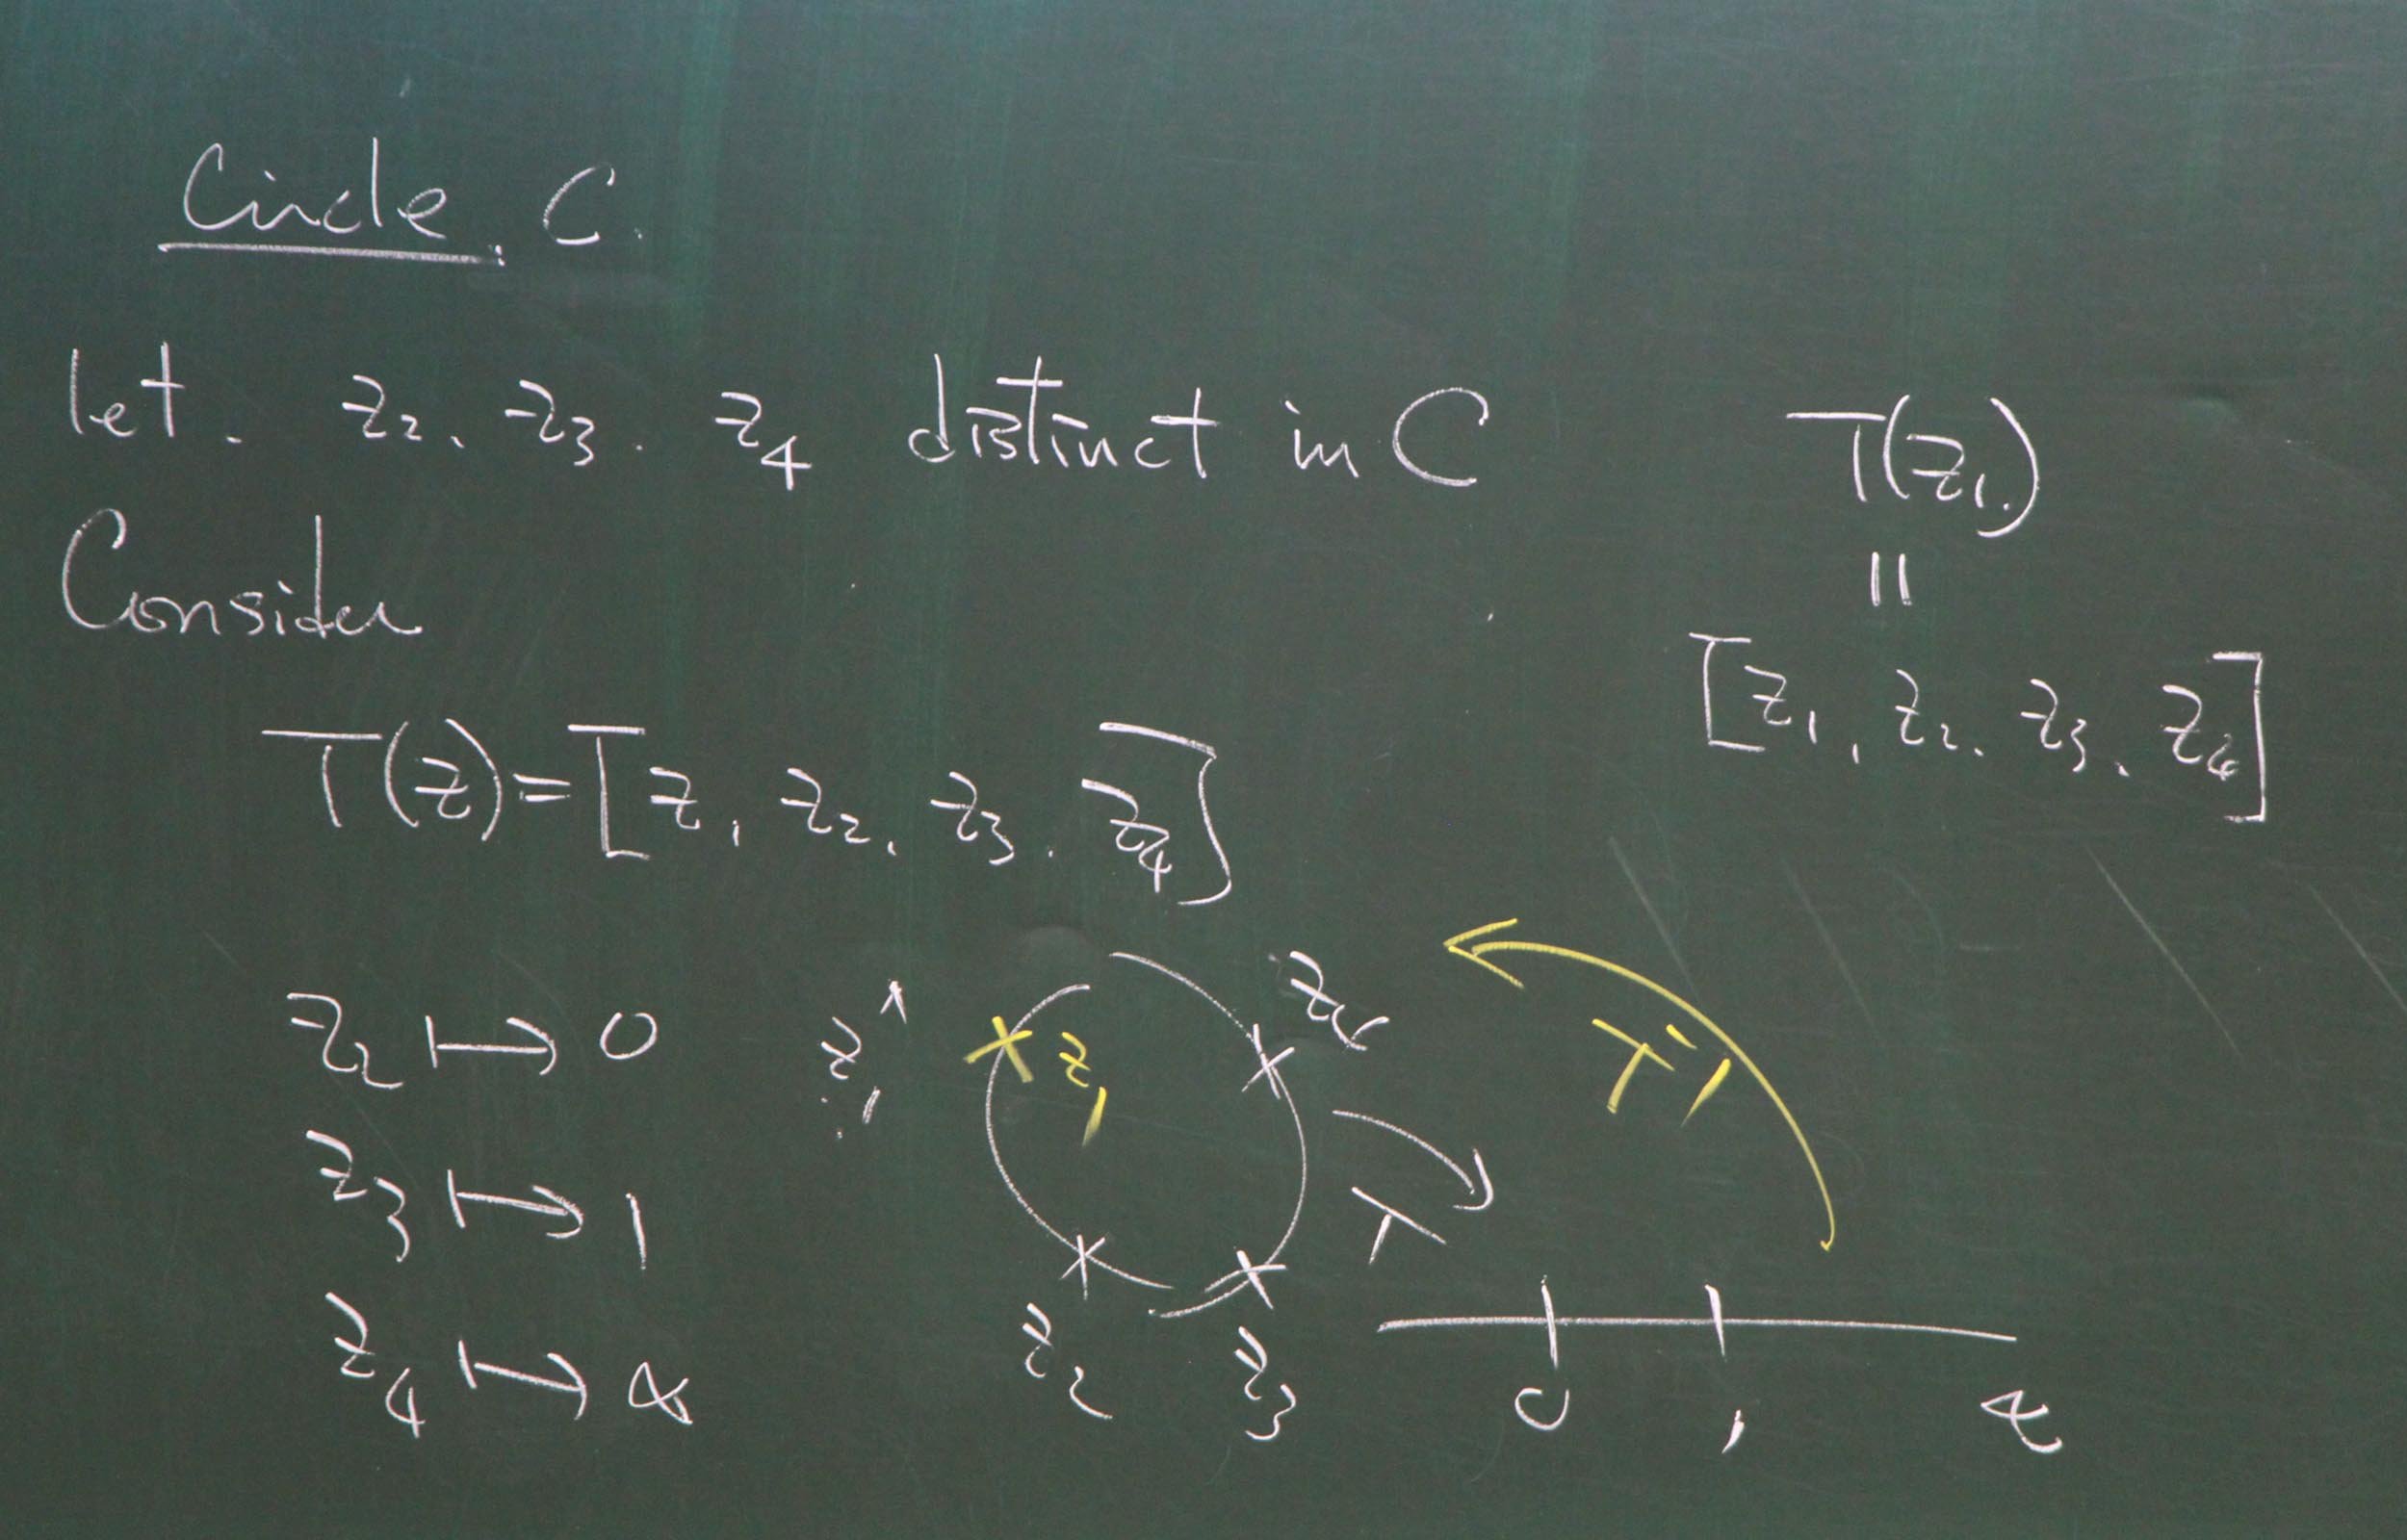 Circle C.
let. z₂. z₃. z₄ distinct in C
Consider
T(z)=[z, z₂, z₃. z₄]
z₂ ↦ 0
z₃ ↦ 1
z₄ ↦ ∝
T(z₁)
=
[z₁, z₂. z₃. z₄]
z₁
z₁
z₄
z₂
z₃
T
T⁻¹
0 1 ∝